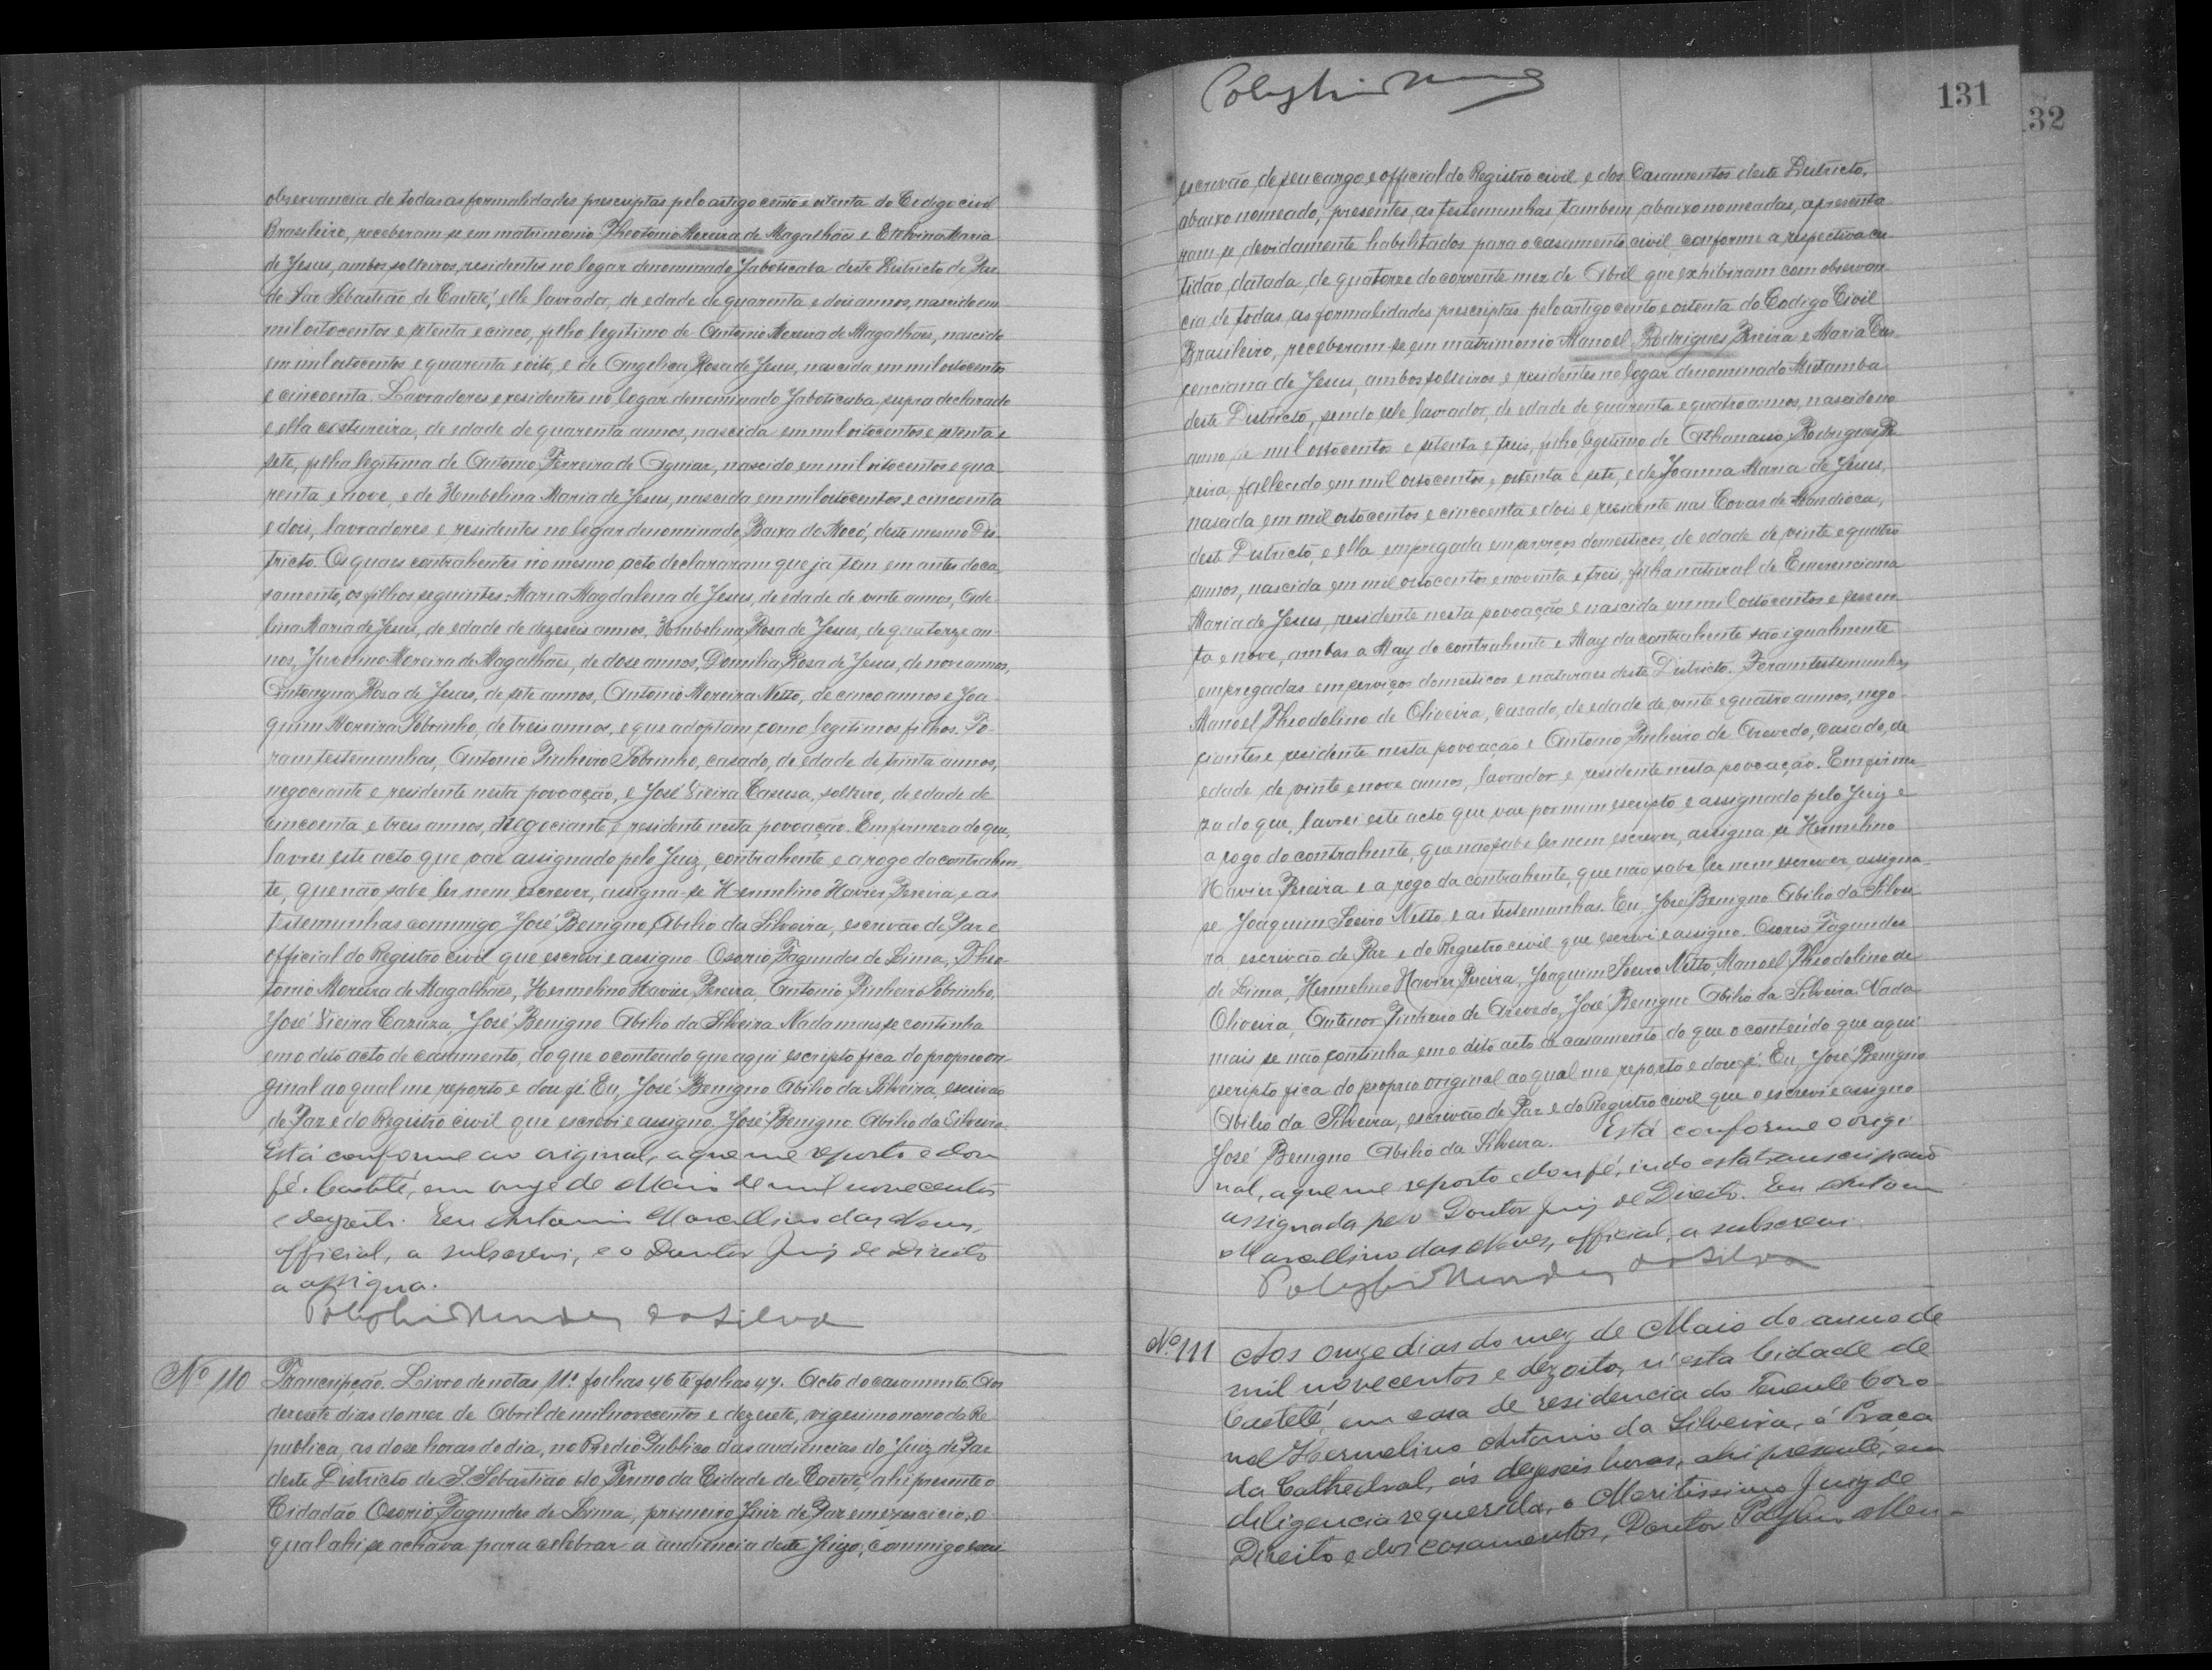 observancia de todas as formalidades prescriptas pelo artigo cento e oitenta do Codigo civil
Brasileiro, receberam se em matrimonio Theotonio Moreira de Magalhães e Etelvina Maria
de Jesus, ambos solteiros, residentes no logar denominado Jaboticaba deste Districto de Paz
de São Sebastião de Caeteté, elle lavrador, de edade de quarenta e dois annos, nascido em
mil oitocentos e setenta e cinco, filho legitimo de Antonio Moreira de Magalhães, nascido
em mil oitocentos e quarenta e oito, e de Angelica Rosa de Jesus, nascida em mil oitocentos
e cincoenta. Lavradores e residentes no logar denominado Jaboticaba supra declarado
e ella costureira, de edade de quarenta annos, nascida em mil oitocentos e setenta e
sete, filha legitima de Antonio Ferreira de Aguiar, nascido em mil oitocentos e qua
renta e nove, e de Hembelina Maria de Jesus, nascida em mil oitocentos e cincoenta
e dois, lavradores e residentes no logar denominado Baixa do Mocó, deste mesmo Dis
tricto. Os quaes contrahentes no mesmo acto declararam que ja tem em antes do ca
samento, os filhos seguintes: Maria Magdalena de Jesus, de edade de vinte annos, Ade
lina Maria de Jesus, de edade de dezeseis annos, Hembelina Rosa de Jesus, de quatorze an
nos, Juvenino Moreira de Magalhães, de dose annos, Domilia Rosa de Jesus, de nove annos,
Antonyna Rosa de Jesus, de sete annos, Antonio Moreira Netto, de cinco annos e Joa
quim Moreira Sobrinho, de treis annos, e que adoptam como legitimos filhos. Fo
ram testemunhas, Antonio Pinheiro Sobrinho, casado, de edade de trinta annos,
negociante e residente nesta povoação, e José Vieira Casusa, solteiro, de edade de
cincoenta e treis annos, negociante e residente nesta povoação. Em firmeza do que,
lavrei este acto que vae assignado pelo Juiz, contrahente, e a rogo da contrahen
te, que não sabe ler nem escrever, assigna-se Hermelino Xavier Pereira, e as
testemunhas commigo José Benigno Abilio da Silveira, escrivão de Paz e
official do Registro civil que escrevi e assigno. Osorio Fagundes de Lima, Theo-
tonio Moreira de Magalhães, Hermelino Xavier Pereira, Antonio Pinheiro Sobrinho,
José Vieira Cazuza, José Benigno Abilio da Silveira. Nada mais se continha
em o dito acto de casamento, do que o conteudo que aqui escripto fica do proprio ori
ginal ao qual me reporto e dou fé. Eu, José Benigno Abilio da Silveira, escrivão
de Paz e do Registro civil que escrevi e assigno. José Benigno Abilio da Silveira.
Está conforme ao original, a que me reporto e dou
fé. Caeteté, em onze de Maio de mil novecentos
e dezoito. Eu Antonio Marcellino das Neves,
official, a subscrevi, e o Doutor Juiz de Direito
a assigna.
Mendes da Silva
Nº 110 Transcripção. Livro de notas 11º folhas 46 té folhas 47. Acto do casamento. Aos
dezesete dias do mez de Abril de mil novecentos e dezesete, vigesimo nono da Re
publica, as dose horas do dia, no Predio Publico das audiencias do Juiz de Paz
deste Districto de S. Sebastião do Termo da Cidade de Caeteté, ahi presente o
Cidadão Osorio Fagundes de Lima, primeiro Juiz de Paz em exercicio, o
qual ahi se achava para celebrar a audiencia deste Juizo, commigo
131
32
escrivão de seu cargo e official do Registro civil e dos Casamentos deste Districto,
abaixo nomeado, presentes as testemunhas tambem abaixo nomeadas, apresenta
ram se devidamente habilitados para o casamento civil, conforme a respectiva cer
tidão, datada de quatorze do corrente mez de Abril que exhibiram com observan
cia de todas as formalidades prescriptas pelo artigo cento e oitenta do Codigo Civil
Brasileiro, receberam-se em matrimonio Manoel Rodrigues Pereira e Maria
de Jesus, ambos solteiros e residentes no logar denominado Mutamba
deste Districto, sendo elle lavrador, de edade de quarenta e quatro annos, nascido no
anno de mil oitocentos e setenta e treis, filho legitimo de Athanasio Rodrigues Pe
reira, fallecido em mil oitocentos e oitenta e sete, e de Joanna Maria de Jesus,
nascida em mil oitocentos e cincoenta e dois e residente nas Covas de Mandioca,
deste Districto, e ella empregada em serviços domesticos, de edade de vinte e quatro
annos, nascida em mil oitocentos e noventa e treis, filha natural de Emerenciana
Maria de Jesus, residente nesta povoação e nascida em mil oitocentos e sessen
ta e nove, ambas a May do contrahente e May da contrahente são igualmente
empregadas em serviços domesticos e naturaes deste Districto. Foram testemunhas
Manoel Theodolino de Oliveira, casado, de edade de vinte e quatro annos, nego-
ciante e residente nesta povoação e Antonio Pinheiro de Azevedo, casado, de
edade de vinte e nove annos, lavrador e residente nesta povoação. Em firme
za do que, lavrei este acto que vae por mim escripto e assignado pelo Juiz e
a rogo do contrahente, que não sabe ler nem escrever, assigna se Hermelino
Xavier Pereira e a rogo da contrahente, que não sabe ler nem escrever, assigna
se Joaquim Soeiro Netto e as testemunhas. Eu, José Benigno Abilio da Silvei
ra, escrivão de Paz e do Registro civil que escrevi e assigno. Osorio Fagundes
de Lima, Hermelino Xavier Pereira, Joaquim Soeiro Netto, Manoel Theodolino de
Oliveira, Antenor Pinheiro de Azevedo, José Benigno Abilio da Silveira. Nada
mais se não continha em o dito acto de casamento do que o conteúdo que aqui
escripto fica do proprio original ao qual me reporto e dou fé. Eu, José Benigno
Abilio da Silveira, escrivão de Paz e do Registro civil que o escrevi e assigno
José Benigno Abilio da Silveira. Está conforme o origi
nal, a que me reporto e dou fé, indo esta transcripção
assignada pelo Doutor Juiz de Direito. Eu Antonio
Marcellino das Neves, official, a subscrevi.
Mendes da Silva
Nº 111 Aos onze dias do mez de Maio do anno de
mil novecentos e dezoito, n'esta Cidade de
Caeteté, em casa de residencia do Tenente Coro
nel Hermelino Antonio da Silveira, á Praça
da Cathedral, ás dezeseis horas, ahi presente, em
diligencia requerida, o Meritissimo Juiz de
Direito e dos casamentos, Doutor Men-